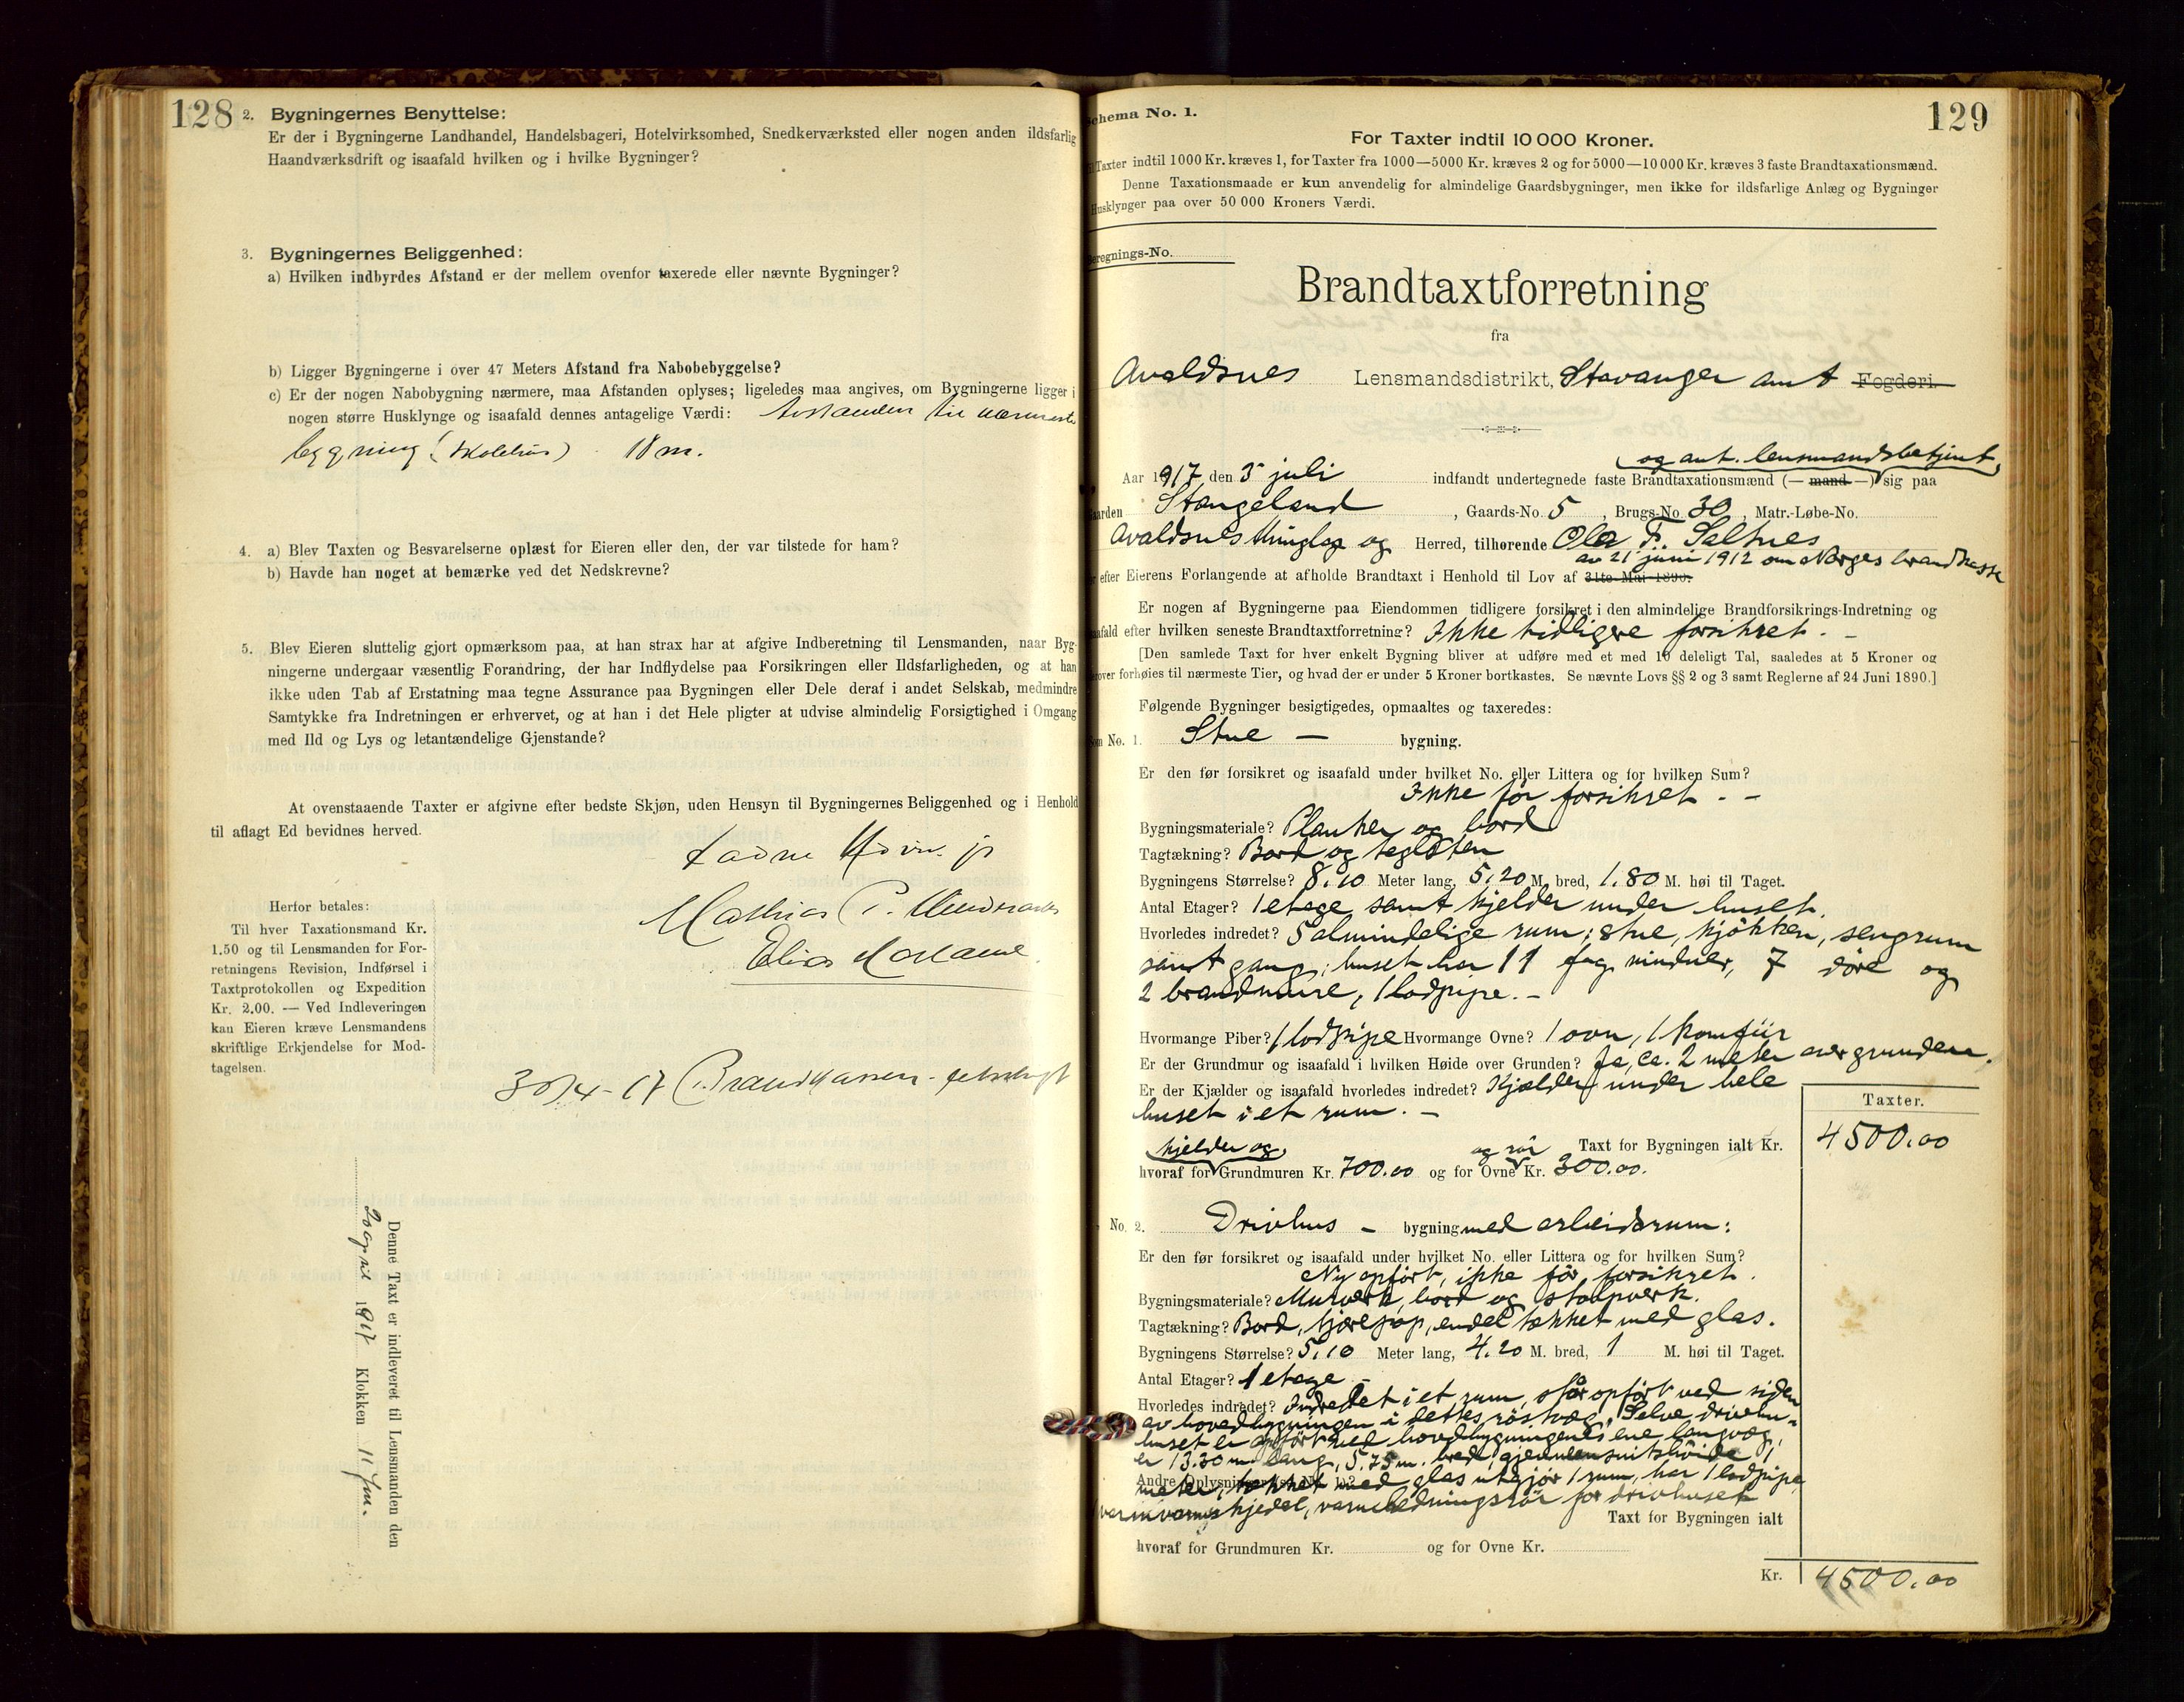 128
2. Bygningernes Benyttelse:
Er der i Bygningerne Landhandel, Handelsbageri, Hotelvirksomhed, Snedkerværksted eller nogen anden ildsfarlig
Haandværksdrift og isaafald hvilken og i hvilke Bygninger?
3. Bygningernes Beliggenhed:
a) Hvilken indbyrdes Afstand er der mellem ovenfor taxerede eller nævnte Bygninger?
b) Ligger Bygningerne i over 47 Meters Afstand fra Nabobebyggelse?
c) Er der nogen Nabobygning nærmere, maa Afstanden oplyses; ligeledes maa angives, om Bygningerne ligger i
nogen større Husklynge og isaafald dennes antagelige Værdi: Avstanden til nærmeste
bygning (skolehus) 18 m.
4. a) Blev Taxten og Besvarelserne oplæst for Eieren eller den, der var tilstede for ham?
b) Havde han noget at bemærke ved det Nedskrevne?
5. Blev Eieren sluttelig gjort opmærksom paa, at han strax har at afgive Indberetning til Lensmanden, naar Byg-
ningerne undergaar væsentlig Forandring, der har Indflydelse paa Forsikringen eller Ildsfarligheden, og at han
ikke uden Tab af Erstatning maa tegne Assurance paa Bygningen eller Dele deraf i andet Selskab, medmindre
Samtykke fra Indretningen er erhvervet, og at han i det Hele pligter at udvise almindelig Forsigtighed i Omgang
med Ild og Lys og letantændelige Gjenstande?
At ovenstaaende Taxter er afgivne efter bedste Skjøn, uden Hensyn til Bygningernes Beliggenhed og i Henhold
til aflagt Ed bevidnes herved.
jr
Mathias
Elias
Herfor betales:
Til hver Taxationsmand Kr.
1.50 og til Lensmanden for For-
retningens Revision, Indførsel i
Taxtprotokollen og Expedition
Kr. 2.00. — Ved Indleveringen
kan Eieren kræve Lensmandens
skriftlige Erkjendelse for Mod-
tagelsen.
30/4-17 Brandkassen
Denne Taxt er indleveret til Lensmanden den
20 april 1917 Klokken 11 fm.
129
Schema No. 1.
For Taxter indtil 10 000 Kroner.
Taxter indtil 1000 Kr. kræves 1, for Taxter fra 1000—5000 Kr. kræves 2 og for 5000—10 000 Kr. kræves 3 faste Brandtaxationsmænd.
Denne Taxationsmaade er kun anvendelig for almindelige Gaardsbygninger, men ikke for ildsfarlige Anlæg og Bygninger
Husklynger paa over 50 000 Kroners Værdi.
Beregnings-No.
Brandtaxtforretning
fra
Avaldsnes Lensmandsdistrikt, Stavanger amt Fogderi.
og ant. lensmandsbetjent
Aar 1917 den 3 juli indfandt undertegnede faste Brandtaxationsmænd (— mand —) sig paa
Gaarden Stangeland, Gaards-No. 5, Brugs-No. 30, Matr.-Løbe-No.
Avaldsnes thinglag og Herred, tilhørende Ola F. Saltnes
av 21 juni 1912 om Norges brandkasse
efter Eierens Forlangende at afholde Brandtaxt i Henhold til Lov af 31te Mai 1890.
Er nogen af Bygningerne paa Eiendommen tidligere forsikret i den almindelige Brandforsikrings-Indretning og
isaafald efter hvilken seneste Brandtaxtforretning? Ikke tidligere forsikret. —
[Den samlede Taxt for hver enkelt Bygning bliver at udføre med et med 10 deleligt Tal, saaledes at 5 Kroner og
derover forhøies til nærmeste Tier, og hvad der er under 5 Kroner bortkastes. Se nævnte Lovs §§ 2 og 3 samt Reglerne af 24 Juni 1890.]
Følgende Bygninger besigtigedes, opmaaltes og taxeredes:
Som No. 1. Stue — bygning.
Er den før forsikret og isaafald under hvilket No. eller Littera og for hvilken Sum?
Ikke før forsikret. —
Bygningsmateriale? Planker og bord
Tagtækning? Bord og teglsten
Bygningens Størrelse? 8.10 Meter lang, 5.20 M. bred, 1.80 M. høi til Taget.
Antal Etager? 1 etage samt kjelder under huset.
Hvorledes indredet? 5 almindelige rum; stue, kjøkken, sengrum
samt gang; huset har 11 fag vinduer, 7 døre og
2 brandmure, 1 lodpipe. —
Hvormange Piber? 1 lodpipe Hvormange Ovne? 1 ovn, 1 komfür
Er der Grundmur og isaafald i hvilken Høide over Grunden? Ja, ca. 2 meter over grunden.
Er der Kjælder og isaafald hvorledes indredet? Kjælder under hele
huset i et rum. —
Taxter.
kjelder og og rør Taxt for Bygningen ialt Kr. 4500.00
hvoraf for Grundmuren Kr. 700.00 og for Ovne Kr. 300.00.
No. 2. Drivhus — bygning med arbeidsrum:
Er den før forsikret og isaafald under hvilket No. eller Littera og for hvilken Sum?
Ny opført, ikke før forsikret.
Bygningsmateriale? Murverk, bord og stolpverk.
Tagtækning? Bord, tjærepap, endel tækket med glas.
Bygningens Størrelse? 5.10 Meter lang, 4.20 M. bred, 1 M. høi til Taget.
Antal Etager? 1 etage —
Hvorledes indredet? Indredet i et rum, står opført ved siden
av hovedbygningen i dettes røstvæg. Selve drivhu-
huset er opført ved hovedbygningens ene langvæg,
er 13.30 m. lang, 5.75 m. bred, gjennemsnitshøide 1
Andre Oplysninger
meter, tækket med glas utgjør 1 rum, har 1 lodpipe,
kjedel, varmeledningsrør for drivhuset
Taxt for Bygningen ialt
hvoraf for Grundmuren Kr. og for Ovne Kr.
Kr. 4500.00